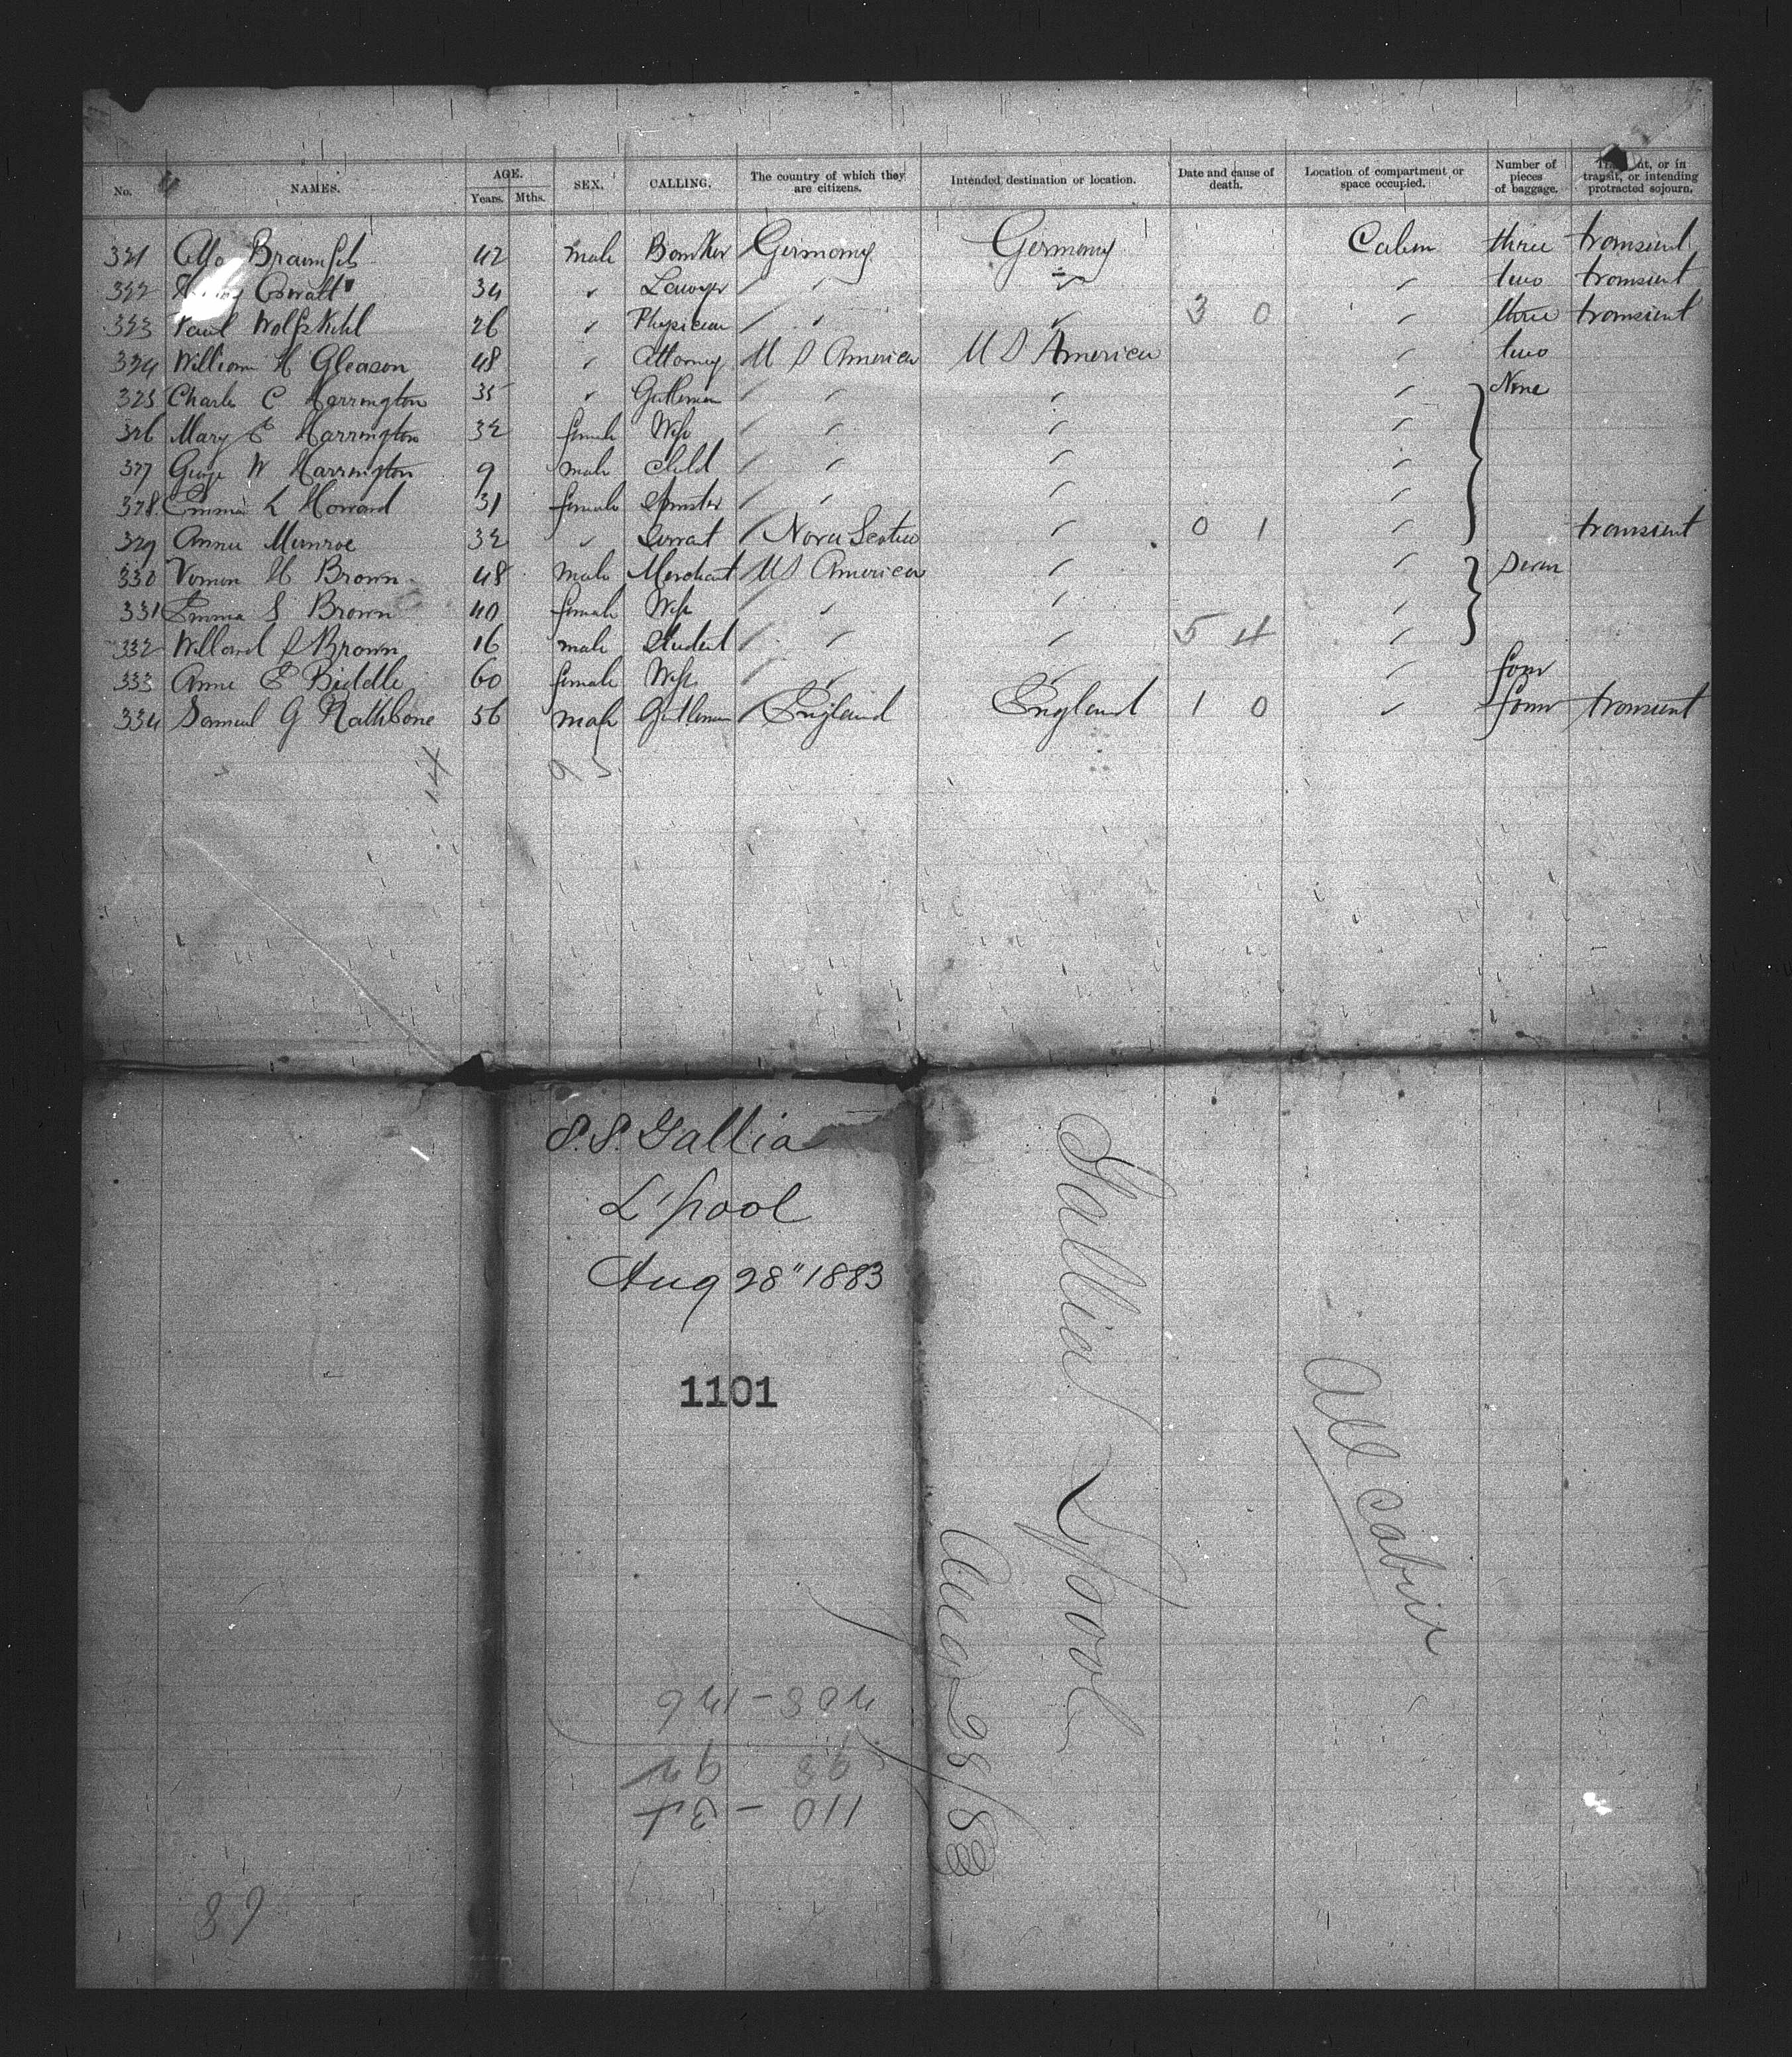 No. NAMES. AGE. Years. Mths. SEX. CALLING. The country of which they are citizens. Intended destination or location. Date and cause of death. Location of compartment or space occupied. Number of pieces of baggage. Transient, or in transit, or intending protracted sojourn.
321 Otto Braunfels 42 male Banker Germany Germany Cabin three transient
322 Oswalt 34 " Lawyer " " " " two transient
323 Paul Wolfskehl 26 " Physician " " " 3 0 " three transient
324 William H Gleason 48 " Attorney U S America U S America " two
325 Charles C Harrington 35 " Gentleman " " " " None
326 Mary E Harrington 32 female Wife " " " "
327 George W Harrington 9 male Child " " " "
328 Emma L Howard 31 female Spinster " " " "
329 Annie Munroe 32 " Servant " Nova Scotia " 0 1 " transient
330 Vernon H Brown 48 male Merchant US America " " Seven
331 Emma S Brown 40 female Wife " " " "
332 Willard S Brown 16 male Student " " " 5 4 "
333 Anne E Biddle 60 female Wife " " " " four
334 Samuel G Rathbone 56 male Gentleman " England England 1 0 " four transient
9 5
S.S. Gallia
L'pool
Aug 28" 1883
1101
Gallia L'pool
Aug 28/83
All cabin
208 - 126
98 92
110 - 34
89